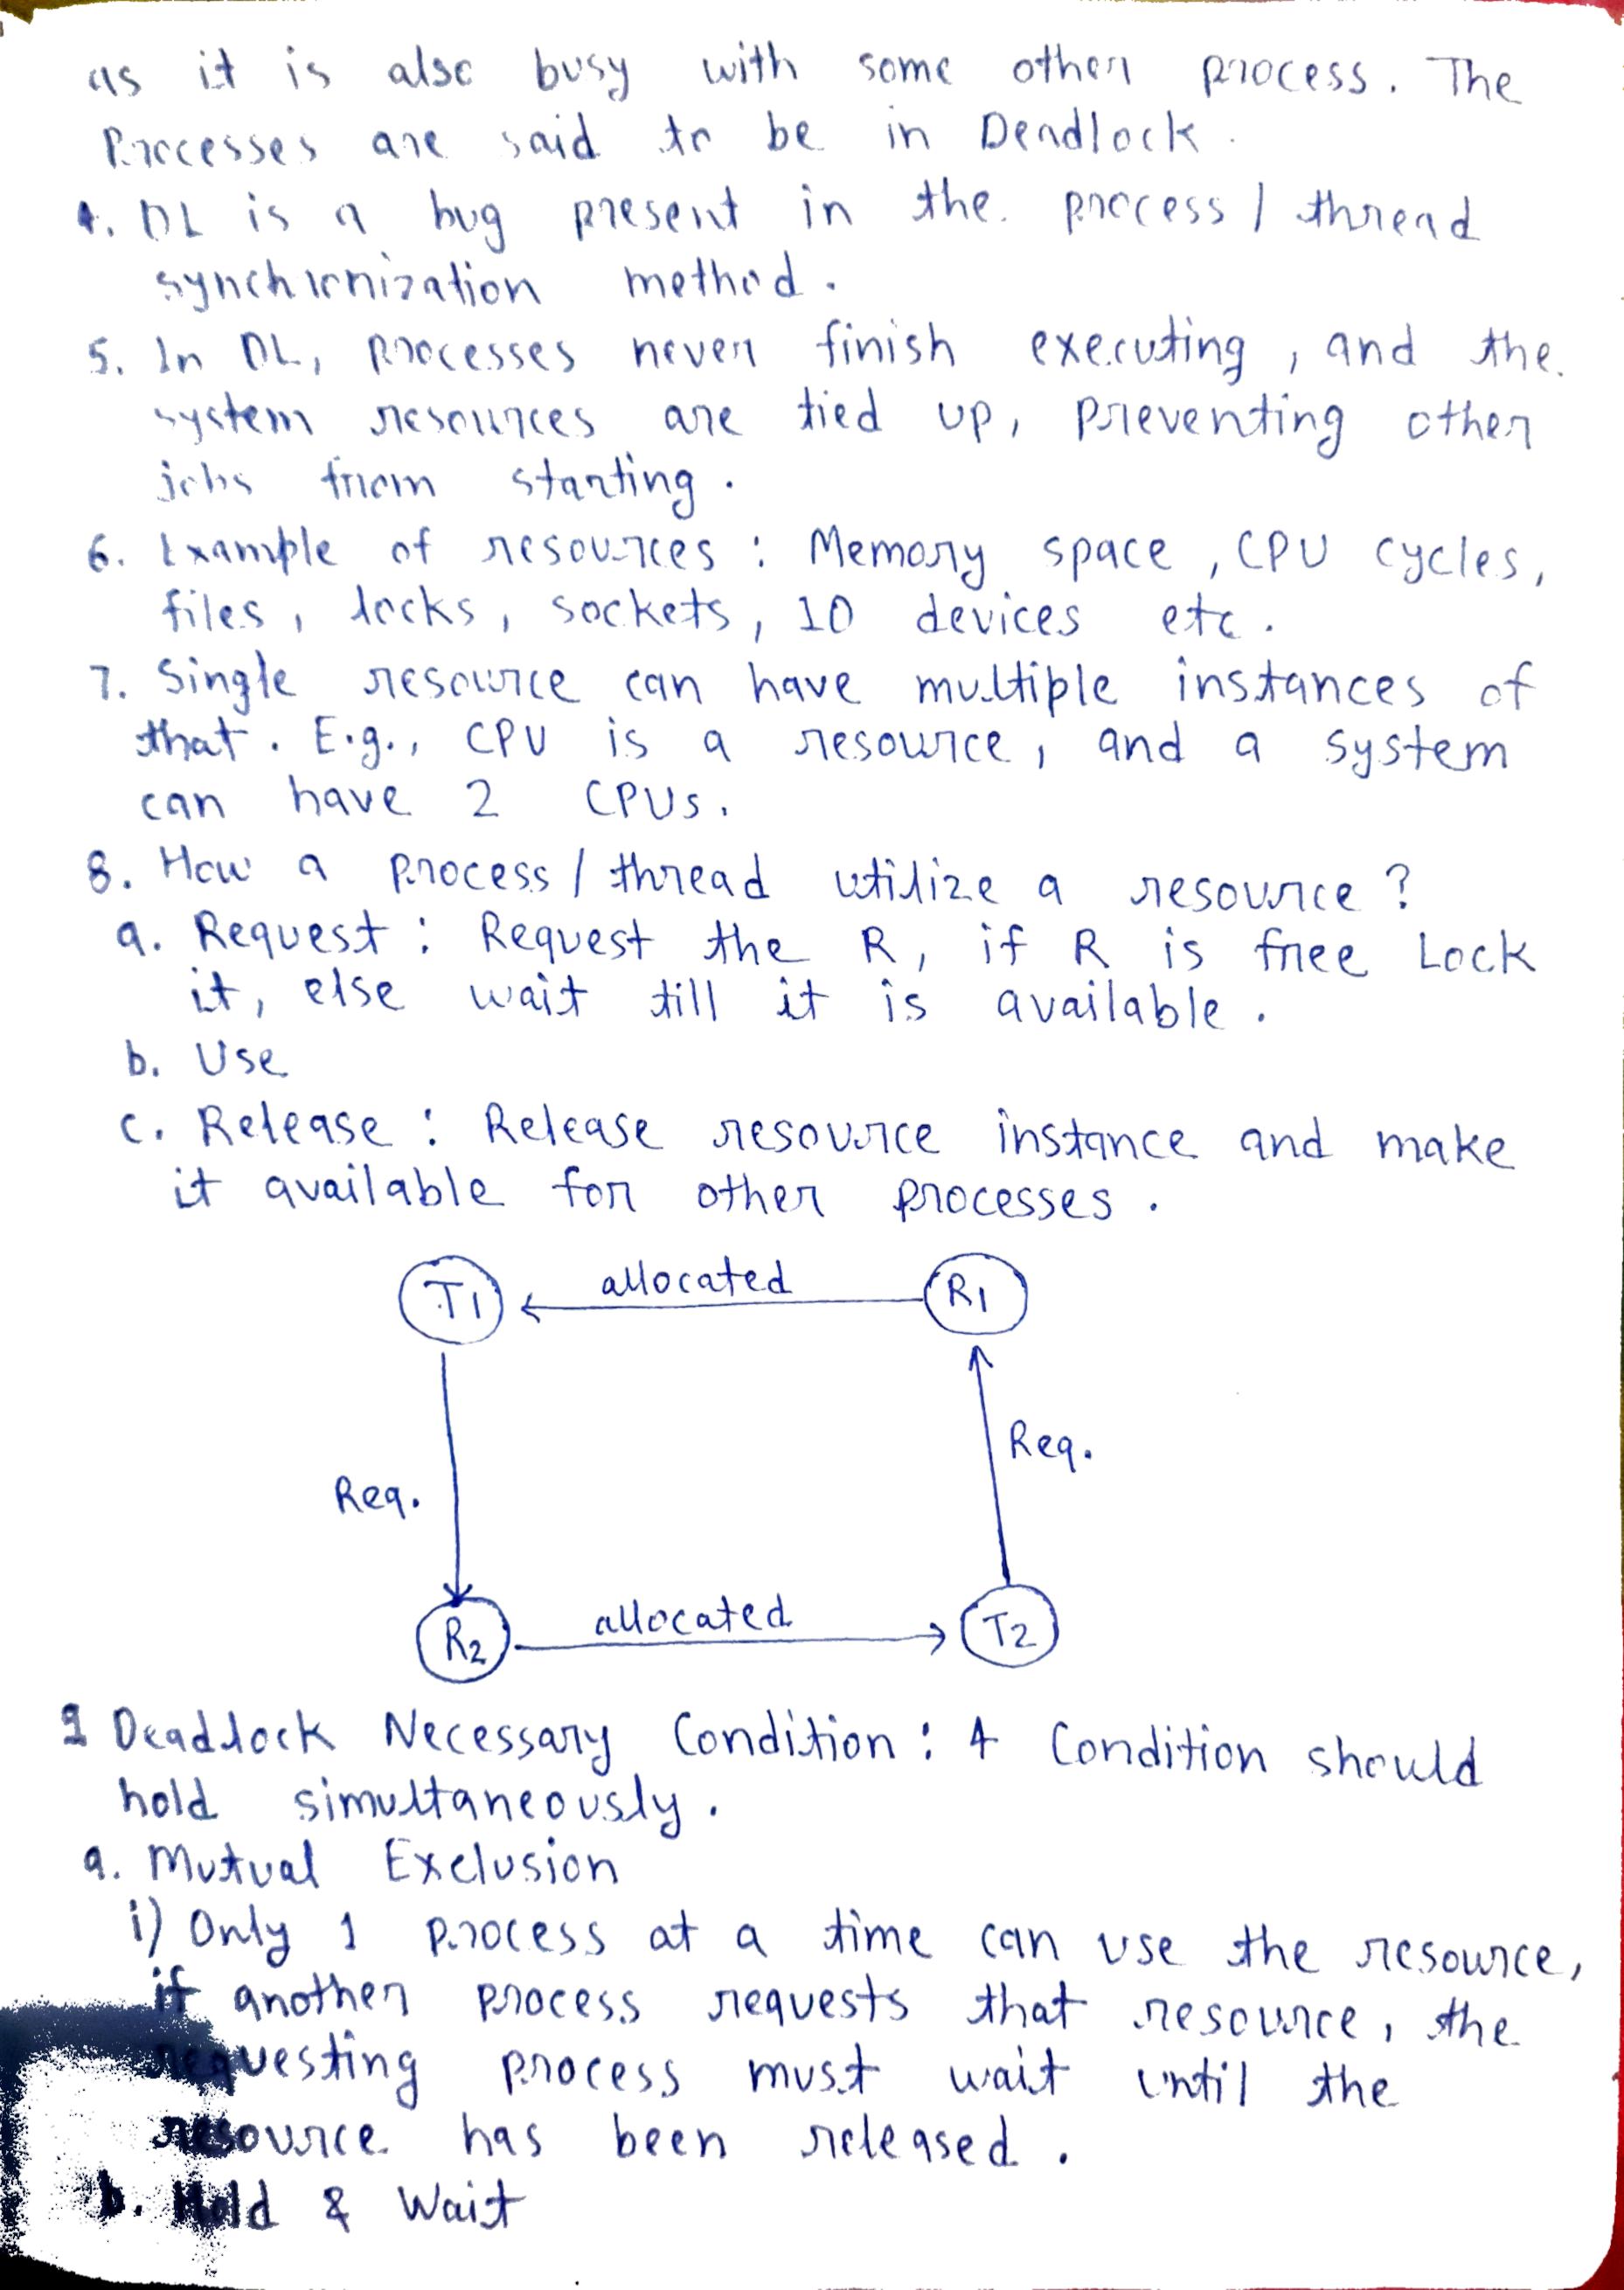 as it is also busy with some other process. The
Processes are said to be in Deadlock.
4. DL is a bug present in the process / thread
synchronization method.
5. In DL, processes never finish executing, and the
system resources are tied up, preventing other
jobs from starting.
6. Example of resources : Memory space, CPU cycles,
files, locks, sockets, IO devices etc.
7. Single resource can have multiple instances of
that. E.g., CPU is a resource, and a system
can have 2 CPUs.
8. How a process / thread utilize a resource ?
a. Request : Request the R, if R is free Lock
it, else wait till it is available.
b. Use
c. Release : Release resource instance and make
it available for other processes.
T1 allocated R1
Req.
Req.
R2 allocated T2
9 Deadlock Necessary Condition : 4 Condition should
hold simultaneously.
a. Mutual Exclusion
i) Only 1 process at a time can use the resource,
if another process requests that resource, the
requesting process must wait until the
resource has been released.
b. Hold & Wait